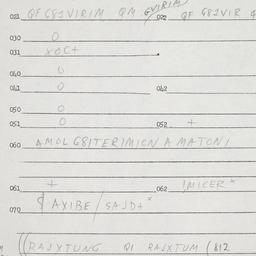 021 QF G81VIRIM QM GVIRIM 022 QF G81VIR
030 0
031 XOC+
040 0
041 0 042
050 0
051 0 052 +
060 AMOL G8ITERIMICN A MATONI
061 + 062 IMICER *
070 AXIBE / SAJD+ *
((RAJXTUNG QI RAJXTUM (812